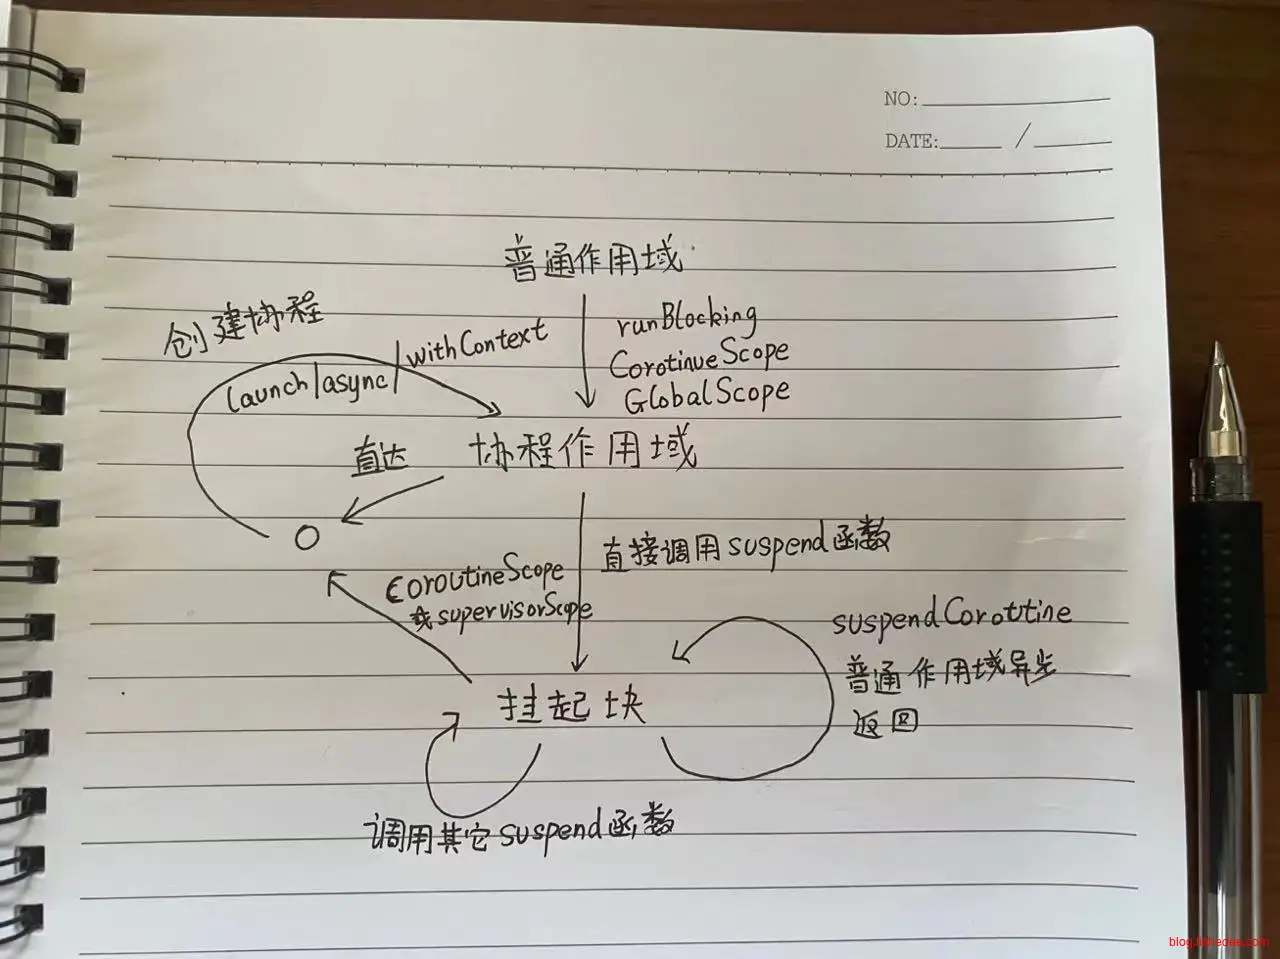 NO:
DATE: /
普通作用域
创建协程
launch/async/withContext
runBlocking
CorotinueScope
GlobalScope
直达
协程作用域
直接调用suspend函数
coroutineScope
或supervisorScope
suspendCorottine
普通作用域异步
返回
挂起块
调用其它suspend函数